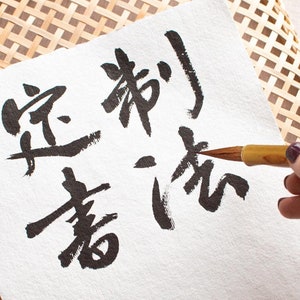 定制
書法